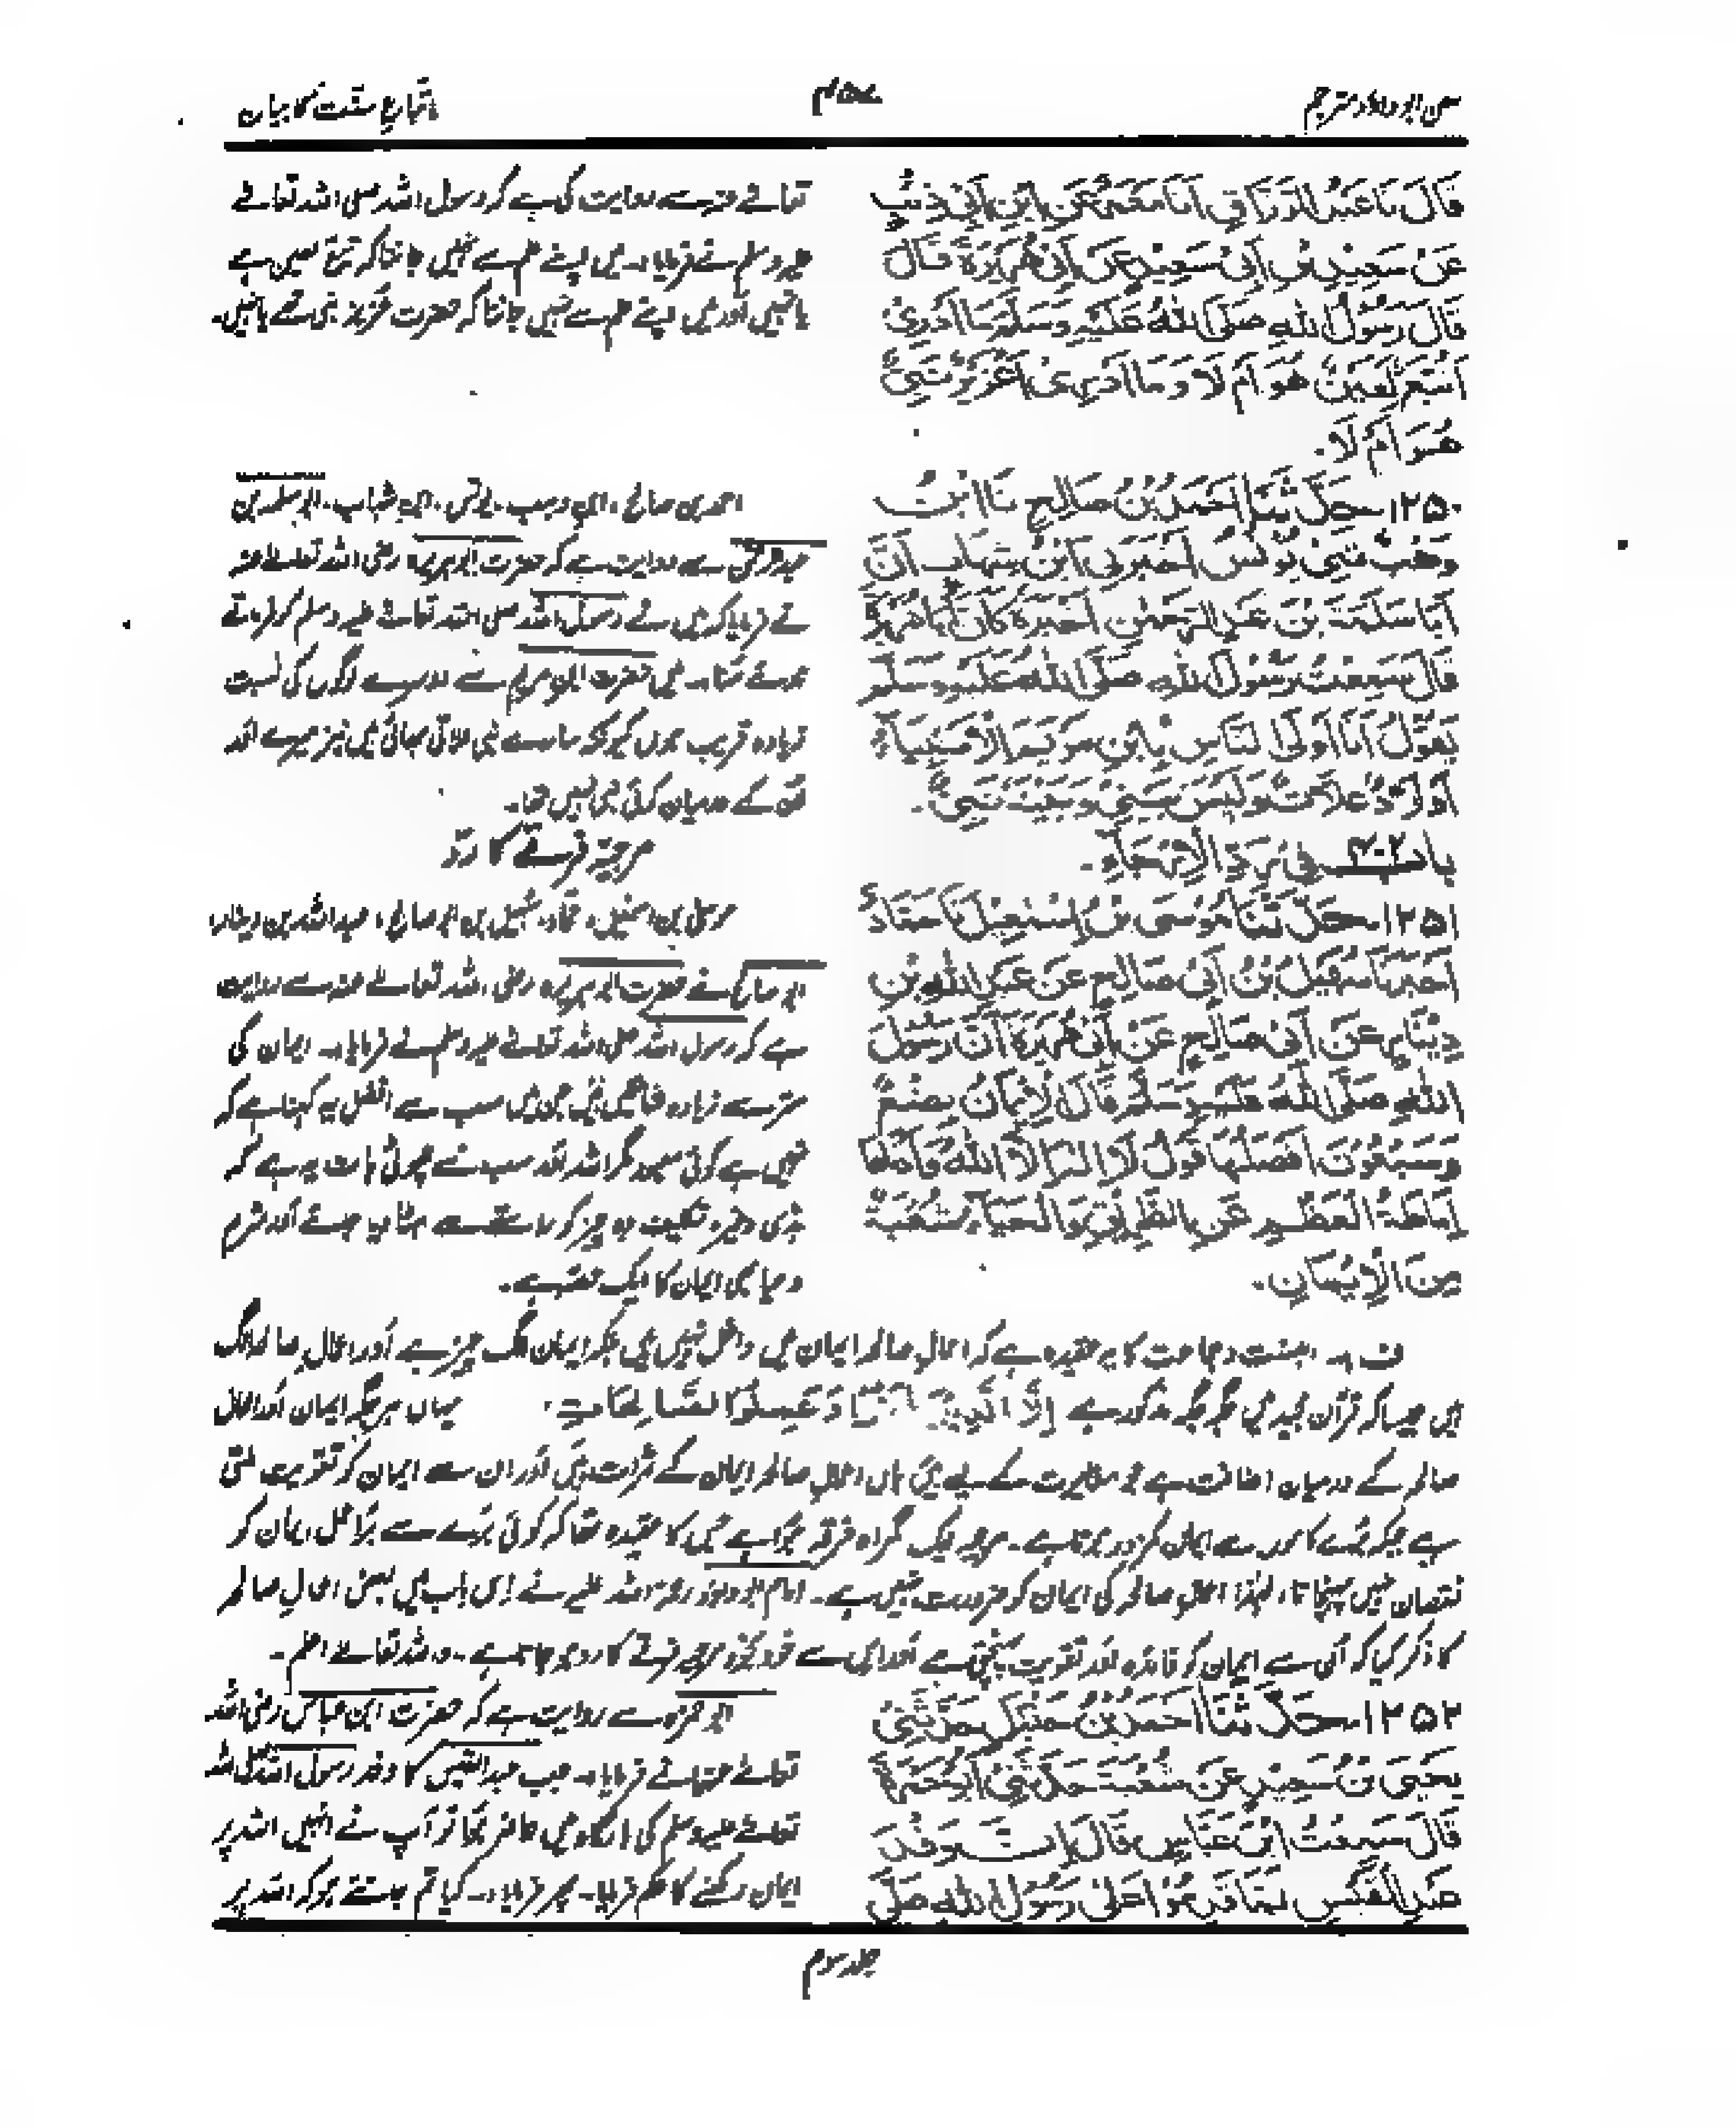 سنن ابو داؤد مترجم
۴۵۷
اتباع سنت کا بیان
قَالَ نَا عَبْدُ الرَّزَّاقِ اَنَا مَعْمَرٌ عَنِ ابْنِ اَبِیْ ذِئْبٍ
عَنْ سَعِیْدِ بْنِ اَبِیْ سَعِیْدٍ عَنْ اَبِیْ هُرَیْرَةَ قَالَ
قَالَ رَسُوْلُ اللهِ صَلَّى اللهُ عَلَیْهِ وَسَلَّمَ مَا اَدْرِیْ
اَتُبَّعٌ لَعِیْنٌ هُوَ اَمْ لَا وَمَا اَدْرِیْ اَعُزَیْرٌ نَبِیٌّ
هُوَ اَمْ لَا.
تعالٰے عنہ سے روایت کی ہے کہ رسول اللہ صلی اللہ تعالٰے
علیہ وسلم نے فرمایا:۔ میں اپنے علم سے نہیں جانتا کہ تبع لعین ہے
یا نہیں اور میں اپنے علم سے نہیں جانتا کہ حضرت عزیر نبی تھے یا نہیں۔
۱۲۵۰۔ حَدَّثَنَا اَحْمَدُ بْنُ صَالِحٍ نَا ابْنُ
وَهْبٍ حَدَّثَنِیْ یُوْنُسُ اَخْبَرَنِیْ ابْنُ شِهَابٍ اَنَّ
اَبَا سَلَمَةَ بْنَ عَبْدِ الرَّحْمٰنِ اَخْبَرَهٗ اَنَّ اَبَا هُرَیْرَةَ
قَالَ سَمِعْتُ رَسُوْلَ اللهِ صَلَّى اللهُ عَلَیْهِ وَسَلَّمَ
یَقُوْلُ اَنَا اَوْلَى النَّاسِ بِابْنِ مَرْیَمَ اَلْاَنْبِیَاءُ
اَوْلَادُ عَلَّاتٍ وَلَیْسَ بَیْنِیْ وَبَیْنَهٗ نَبِیٌّ.
احمد بن صالح، ابن وہب، یونس، ابن شہاب، ابو سلمہ بن
عبدالرحمٰن سے روایت ہے کہ حضرت ابوہریرہ رضی اللہ تعالٰے عنہ
نے فرمایا کہ میں نے رسول اللہ صلی اللہ تعالٰے علیہ وسلم کو فرماتے
ہوئے سنا:۔ میں حضرت ابن مریم سے دوسرے لوگوں کی نسبت
زیادہ قریب ہوں کیونکہ سارے نبی علاتی بھائی ہیں نیز میرے اور
اُن کے درمیان کوئی نبی نہیں تھا۔
بَابٌ ۴۰۲ فِیْ رَدِّ الْاِرْجَاءِ.
مرجئہ فرقے کا رد
۱۲۵۱۔ حَدَّثَنَا مُوْسَى بْنُ اِسْمٰعِیْلَ نَا حَمَّادٌ
اَخْبَرَنَا سُهَیْلُ بْنُ اَبِیْ صَالِحٍ عَنْ عَبْدِ اللهِ بْنِ
دِیْنَارٍ عَنْ اَبِیْ صَالِحٍ عَنْ اَبِیْ هُرَیْرَةَ اَنَّ رَسُوْلَ
اللهِ صَلَّى اللهُ عَلَیْهِ وَسَلَّمَ قَالَ اَلْاِیْمَانُ بِضْعٌ
وَسَبْعُوْنَ اَفْضَلُهَا قَوْلُ لَا اِلٰهَ اِلَّا اللهُ وَاَدْنَاهَا
اِمَاطَةُ الْعَظْمِ عَنِ الطَّرِیْقِ وَالْحَیَاءُ شُعْبَةٌ
مِنَ الْاِیْمَانِ.
موسٰی بن اسمٰعیل، حماد، سہیل بن ابو صالح، عبداللہ بن دینار،
ابو صالح نے حضرت ابوہریرہ رضی اللہ تعالٰے عنہ سے روایت
ہے کہ رسول اللہ صلی اللہ تعالٰے علیہ وسلم نے فرمایا:۔ ایمان کی
ستر سے زیادہ شاخیں ہیں جن میں سب سے افضل یہ کہنا ہے کہ
نہیں ہے کوئی معبود مگر اللہ اور سب سے چھوٹی بات یہ ہے کہ
ہڈی وغیرہ تکلیف دہ چیز کو راستے سے ہٹا دیا جائے اور شرم
و حیا بھی ایمان کا ایک حصہ ہے۔
ف :۔ اہلسنت وجماعت کا یہ عقیدہ ہے کہ اعمالِ صالحہ ایمان میں داخل نہیں ہیں بلکہ ایمان الگ چیز ہے اور اعمالِ صالحہ الگ
ہیں جیسا کہ قرآن مجید میں جگہ جگہ مذکور ہے اِلَّا الَّذِیْنَ اٰمَنُوْا وَعَمِلُوا الصّٰلِحٰتِ، یہاں ہر جگہ ایمان اور اعمال
صالحہ کے درمیان اضافت ہے جو مغایرت کے لیے ہے، ہاں اعمالِ صالحہ ایمان کے ثمرات ہیں اور ان سے ایمان کو تقویت ملتی
ہے جبکہ بُرے کاموں سے ایمان کمزور ہوتا ہے۔ مرجیہ ایک گمراہ فرقہ ہوا ہے جس کا عقیدہ تھا کہ کوئی بُرے سے بُرا عمل ایمان کو
نقصان نہیں پہنچاتا، لہٰذا اعمالِ صالحہ کی ایمان کو ضرورت نہیں ہے۔ امام ابو داؤد رحمۃ اللہ علیہ نے اِس باب میں بعض اعمالِ صالحہ
کا ذکر کیا کہ اُن سے ایمان کو فائدہ اور تقویت پہنچتی ہے اور اس سے خود بخود مرجیہ فرقے کا رد ہو جاتا ہے۔ واللہ تعالٰے اعلم۔
۱۲۵۲۔ حَدَّثَنَا اَحْمَدُ بْنُ حَنْبَلٍ حَدَّثَنِیْ
یَحْیَى بْنُ سَعِیْدٍ عَنْ شُعْبَةَ حَدَّثَنِیْ اَبُوْ جَمْرَةَ
قَالَ سَمِعْتُ ابْنَ عَبَّاسٍ قَالَ اِنَّ وَفْدَ
عَبْدِ الْقَیْسِ لَمَّا قَدِمُوْا عَلٰى رَسُوْلِ اللهِ صَلَّى
ابو حمزہ سے روایت ہے کہ حضرت ابن عباس رضی اللہ
تعالٰے عنہما نے فرمایا:۔ جب عبدالقیس کا وفد رسول اللہ صلی اللہ
تعالٰے علیہ وسلم کی بارگاہ میں حاضر ہوا تو آپ نے انہیں اللہ پر
ایمان رکھنے کا حکم فرمایا۔ پھر فرمایا:۔ کیا تم جانتے ہو کہ اللہ پر
جلد سوم